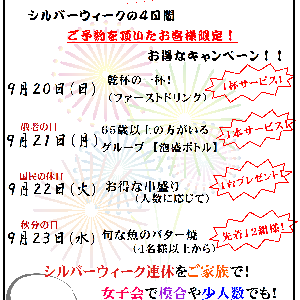 シルバーウィークの4日間
ご予約を頂いたお客様限定！
お得なキャンペーン！！
9月20日(日) 乾杯の一杯! 1杯サービス!
(ファーストドリンク)
敬老の日
9月21日(月) 65歳以上の方がいる 1本サービス!
グループ 【泡盛ボトル】
国民の休日
9月22日(火) お得な串盛り 1台プレゼント!
(人数に応じて)
秋分の日
9月23日(水) 旬な魚のバター焼 先着12組様!
(4名様以上から)
シルバーウィーク連休をご家族で!
女子会で模合や少人数でも!